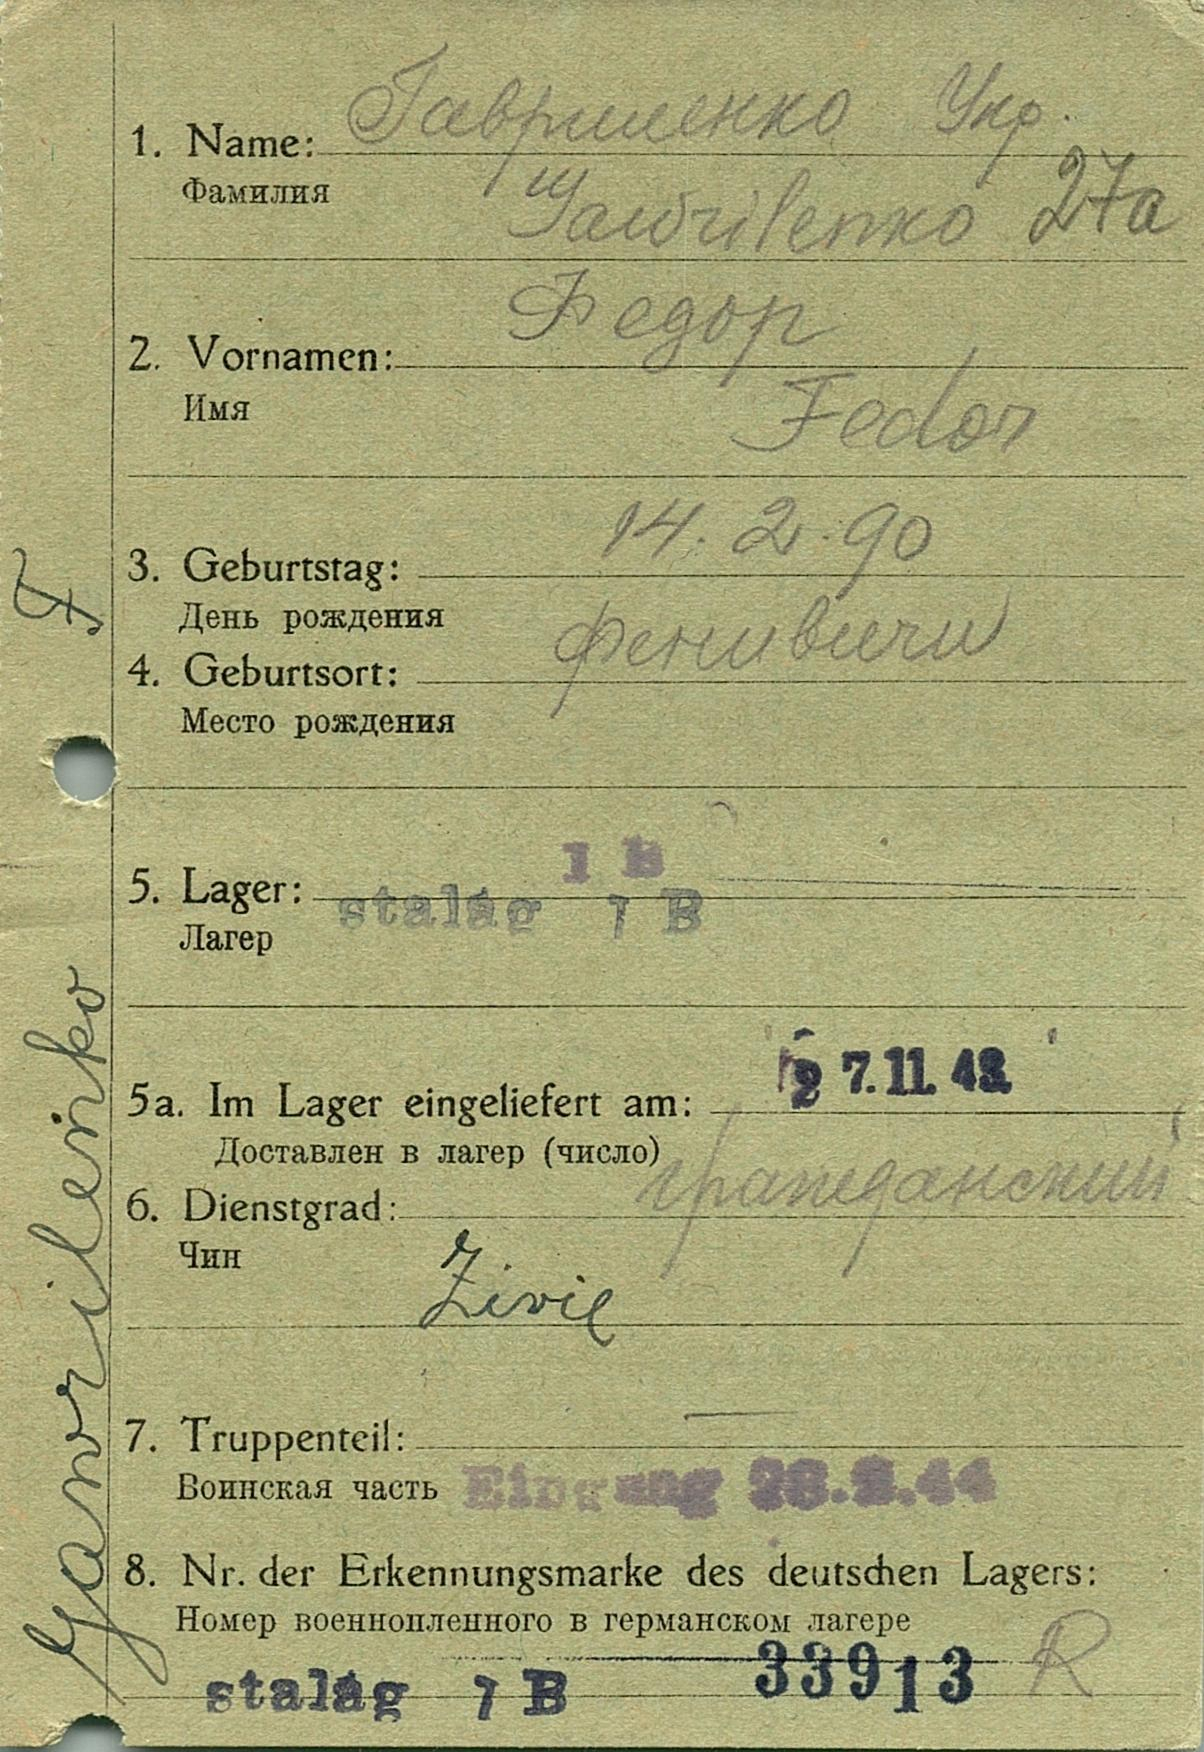 1. Name: Гавриленко Укр.
Фамилия Gawrilenko 27a
2. Vornamen: Федор
Имя Fedor
3. Geburtstag: 14.2.90
День рождения
4. Geburtsort: Фенивичи
Место рождения
I B
5. Lager: stalag I B
Лагер
5a. Im Lager eingeliefert am: 27.11.43
Доставлен в лагер (число)
6. Dienstgrad: гражданский
Чин
Zivil
7. Truppenteil: —
Воинская часть Eingang 28.2.44
8. Nr. der Erkennungsmarke des deutschen Lagers:
Номер военнопленного в германском лагере
stalag I B 33913 R
Gawrilenko F